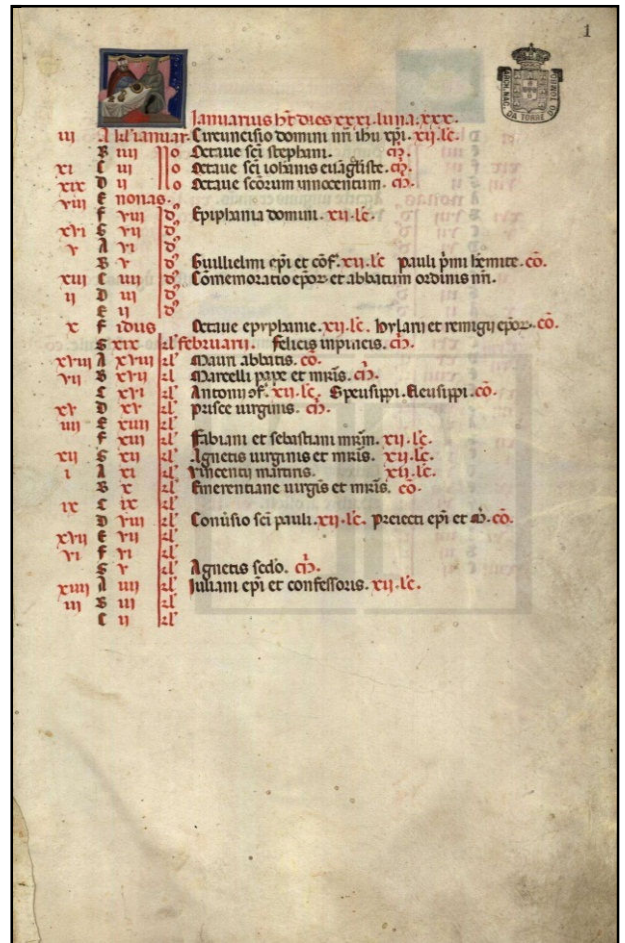 1
ARCH. NAC. DA TORRE DO TOMBO
Ianuarius ht dies xxxi. luna. xxx.
iii A kl' ianuar. Circuncisio domini nri ihu xpi. xii. lc.
B iiii no Octaue sci stephani. m.
xi C iii no Octaue sci iohanis euagliste. m.
xix D ii no Octaue scorum innocentum. m.
viii E nonas.
F viii id' Epiphania domini. xii. lc.
xvi G vii id'
v A vi id'
B v id' Guillielmi epi et cof. xii. lc pauli pmi hemite. co.
xiii C iiii id' Comemoratio epor et abbatum ordinis nri.
ii D iii id'
E ii id'
x F idus Octaue epyphanie. xii. lc. hylarii et remigii epor. co.
G xix kl' februarii. felicis inpincis. m.
xviii A xviii kl' Mauri abbatis. co.
vii B xvii kl' Marcelli pape et mris. m.
C xvi kl' Antonii of. xii. lc. Speusippi. Eleusippi. co.
xv D xv kl' prisce uirginis. m.
iiii E xiiii kl'
F xiii kl' Fabiani et sebastiani mrm. xii. lc.
xii G xii kl' Agnetis uirginis et mris. xii. lc.
i A xi kl' Vincentii martiris. xii. lc.
B x kl' Emerentiane uirgis et mris. co.
ix C ix kl'
D viii kl' Conusio sci pauli. xii. lc. preiecti epi et m. co.
xvii E vii kl'
vi F vi kl'
G v kl' Agnetis scdo. m.
xiiii A iiii kl' Iuliani epi et confessoris. xii. lc.
iii B iii kl'
C ii kl'